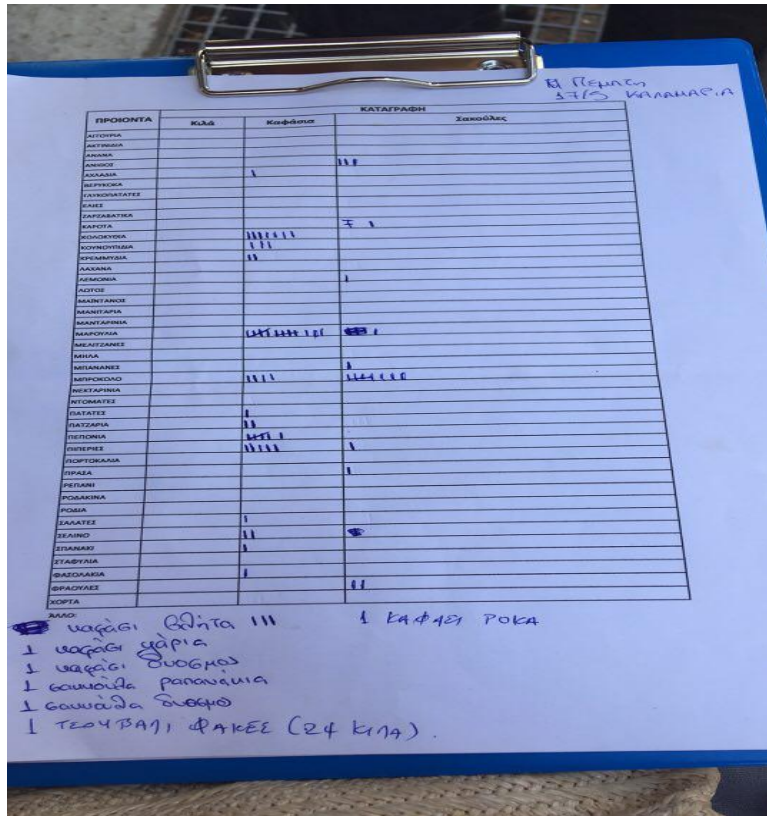 Πέμπτη
17/5 ΚΑΛΑΜΑΡΙΑ
ΚΑΤΑΓΡΑΦΗ
ΠΡΟΙΟΝΤΑ Κιλά Καφάσια Σακούλες
ΑΓΓΟΥΡΙΑ
ΑΚΤΙΝΙΔΙΑ
ΑΝΑΝΑ
ΑΝΗΘΟΣ III
ΑΧΛΑΔΙΑ I
ΒΕΡΥΚΟΚΑ
ΓΛΥΚΟΠΑΤΑΤΕΣ
ΕΛΙΕΣ
ΖΑΡΖΑΒΑΤΙΚΑ
ΚΑΡΟΤΑ I I
ΚΟΛΟΚΥΘΙΑ IIIIIII
ΚΟΥΝΟΥΠΙΔΙΑ III
ΚΡΕΜΜΥΔΙΑ II
ΛΑΧΑΝΑ
ΛΕΜΟΝΙΑ I
ΛΩΤΟΣ
ΜΑΙΝΤΑΝΟΣ
ΜΑΝΙΤΑΡΙΑ
ΜΑΝΤΑΡΙΝΙΑ
ΜΑΡΟΥΛΙΑ IIIII IIIII III I
ΜΕΛΙΤΖΑΝΕΣ
ΜΗΛΑ
ΜΠΑΝΑΝΕΣ I
ΜΠΡΟΚΟΛΟ IIII IIIII III
ΝΕΚΤΑΡΙΝΙΑ
ΝΤΟΜΑΤΕΣ
ΠΑΤΑΤΕΣ I
ΠΑΤΖΑΡΙΑ II
ΠΕΠΟΝΙΑ IIIII I
ΠΙΠΕΡΙΕΣ IIIII I
ΠΟΡΤΟΚΑΛΙΑ
ΠΡΑΣΑ I
ΡΕΠΑΝΙ
ΡΟΔΑΚΙΝΑ
ΡΟΔΙΑ
ΣΑΛΑΤΕΣ I
ΣΕΛΙΝΟ II
ΣΠΑΝΑΚΙ I
ΣΤΑΦΥΛΙΑ
ΦΑΣΟΛΑΚΙΑ I
ΦΡΑΟΥΛΕΣ II
ΧΟΡΤΑ
ΑΛΛΟ:
καφάσι βλήτα III 1 ΚΑΦΑΣΙ ΡΟΚΑ
1 καφάσι
1 καφάσι δυοσμος
1 σακούλα ραπανάκια
1 σακούλα δυοσμο
1 ΤΣΟΥΒΑΛΙ ΦΑΚΕΣ (24 ΚΙΛΑ).